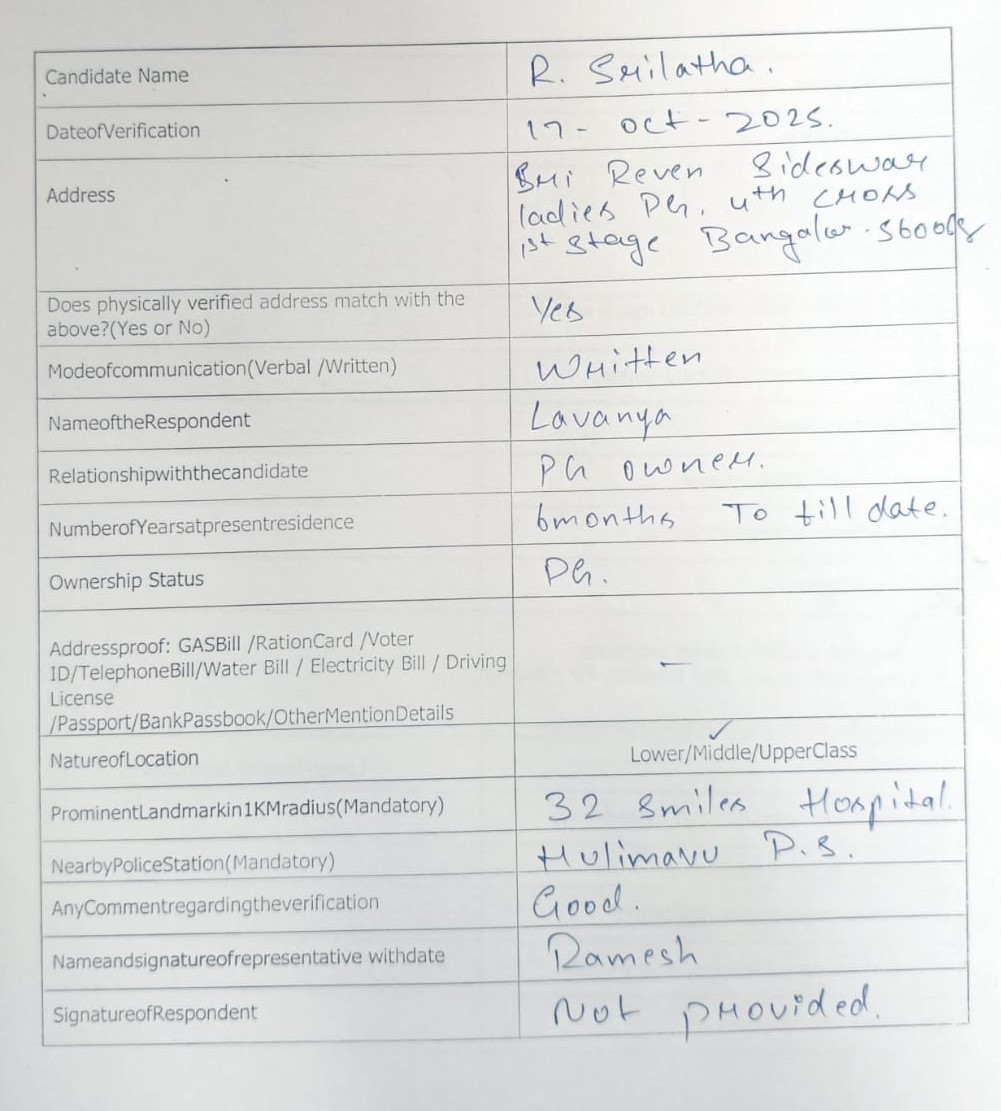 Candidate Name R. Srilatha.
DateofVerification 17- oct - 2025.
Address Sri Reven Sideswar
ladies PG, 4th cross
1st stage Bangalor.
Does physically verified address match with the
above?(Yes or No) Yes
Modeofcommunication(Verbal /Written) Written
NameoftheRespondent Lavanya
Relationshipwiththecandidate PG owner.
NumberofYearsatpresentresidence 6months To till date.
Ownership Status PG.
Addressproof: GASBill /RationCard /Voter
ID/TelephoneBill/Water Bill / Electricity Bill / Driving
License
/Passport/BankPassbook/OtherMentionDetails -
NatureofLocation Lower/Middle/UpperClass
ProminentLandmarkin1KMradius(Mandatory) 32 Smiles Hospital.
NearbyPoliceStation(Mandatory) Hulimavu P.S.
AnyCommentregardingtheverification Good.
Nameandsignatureofrepresentative withdate Ramesh
SignatureofRespondent Not provided.